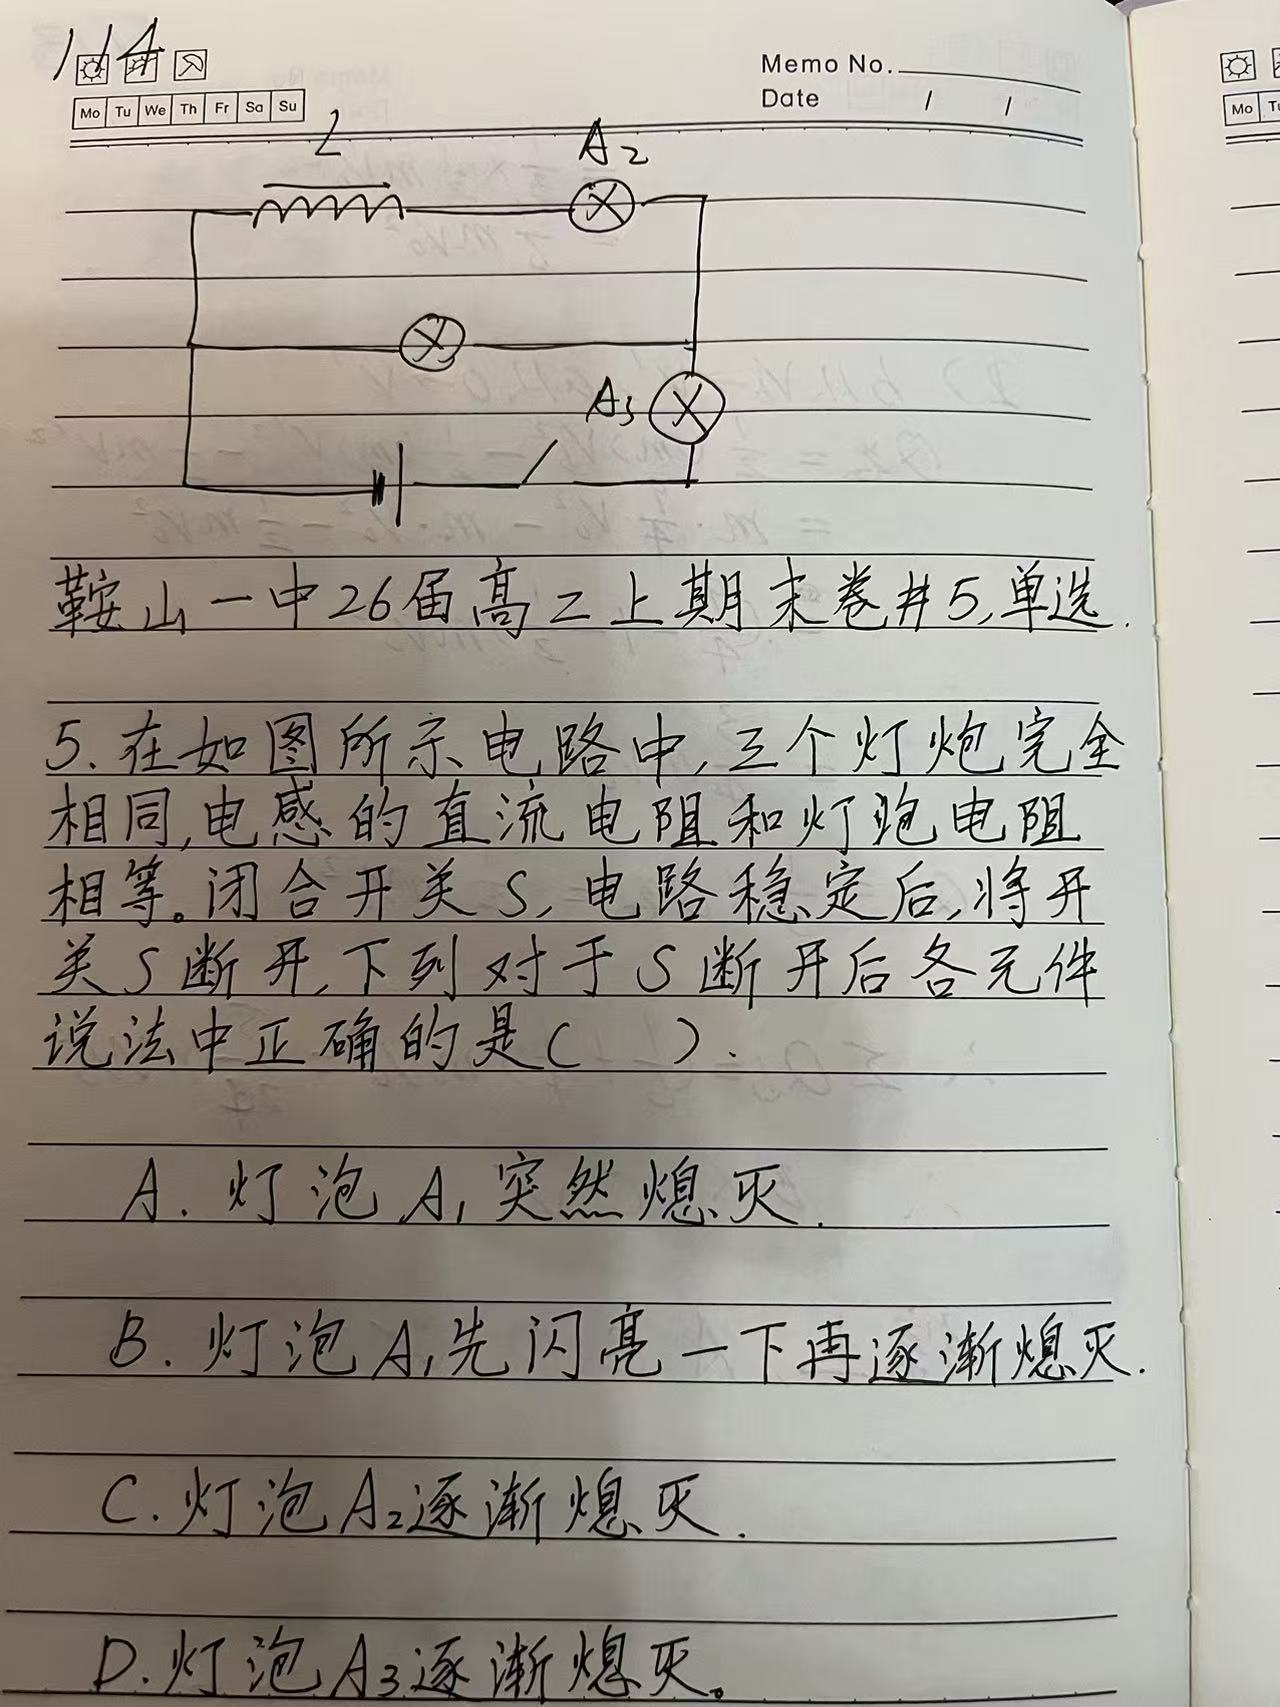 114
Memo No.
Mo Tu We Th Fr Sa Su
Date / /
Mo
L
A2
A3
鞍山一中26届高二上期末卷#5,单选.
5.在如图所示电路中,三个灯炮完全
相同,电感的直流电阻和灯炮电阻
相等。闭合开关S,电路稳定后,将开
关S断开,下列对于S断开后各元件
说法中正确的是( ).
A.灯泡A1突然熄灭.
B.灯泡A1先闪亮一下再逐渐熄灭.
C.灯泡A2逐渐熄灭.
D.灯泡A3逐渐熄灭。